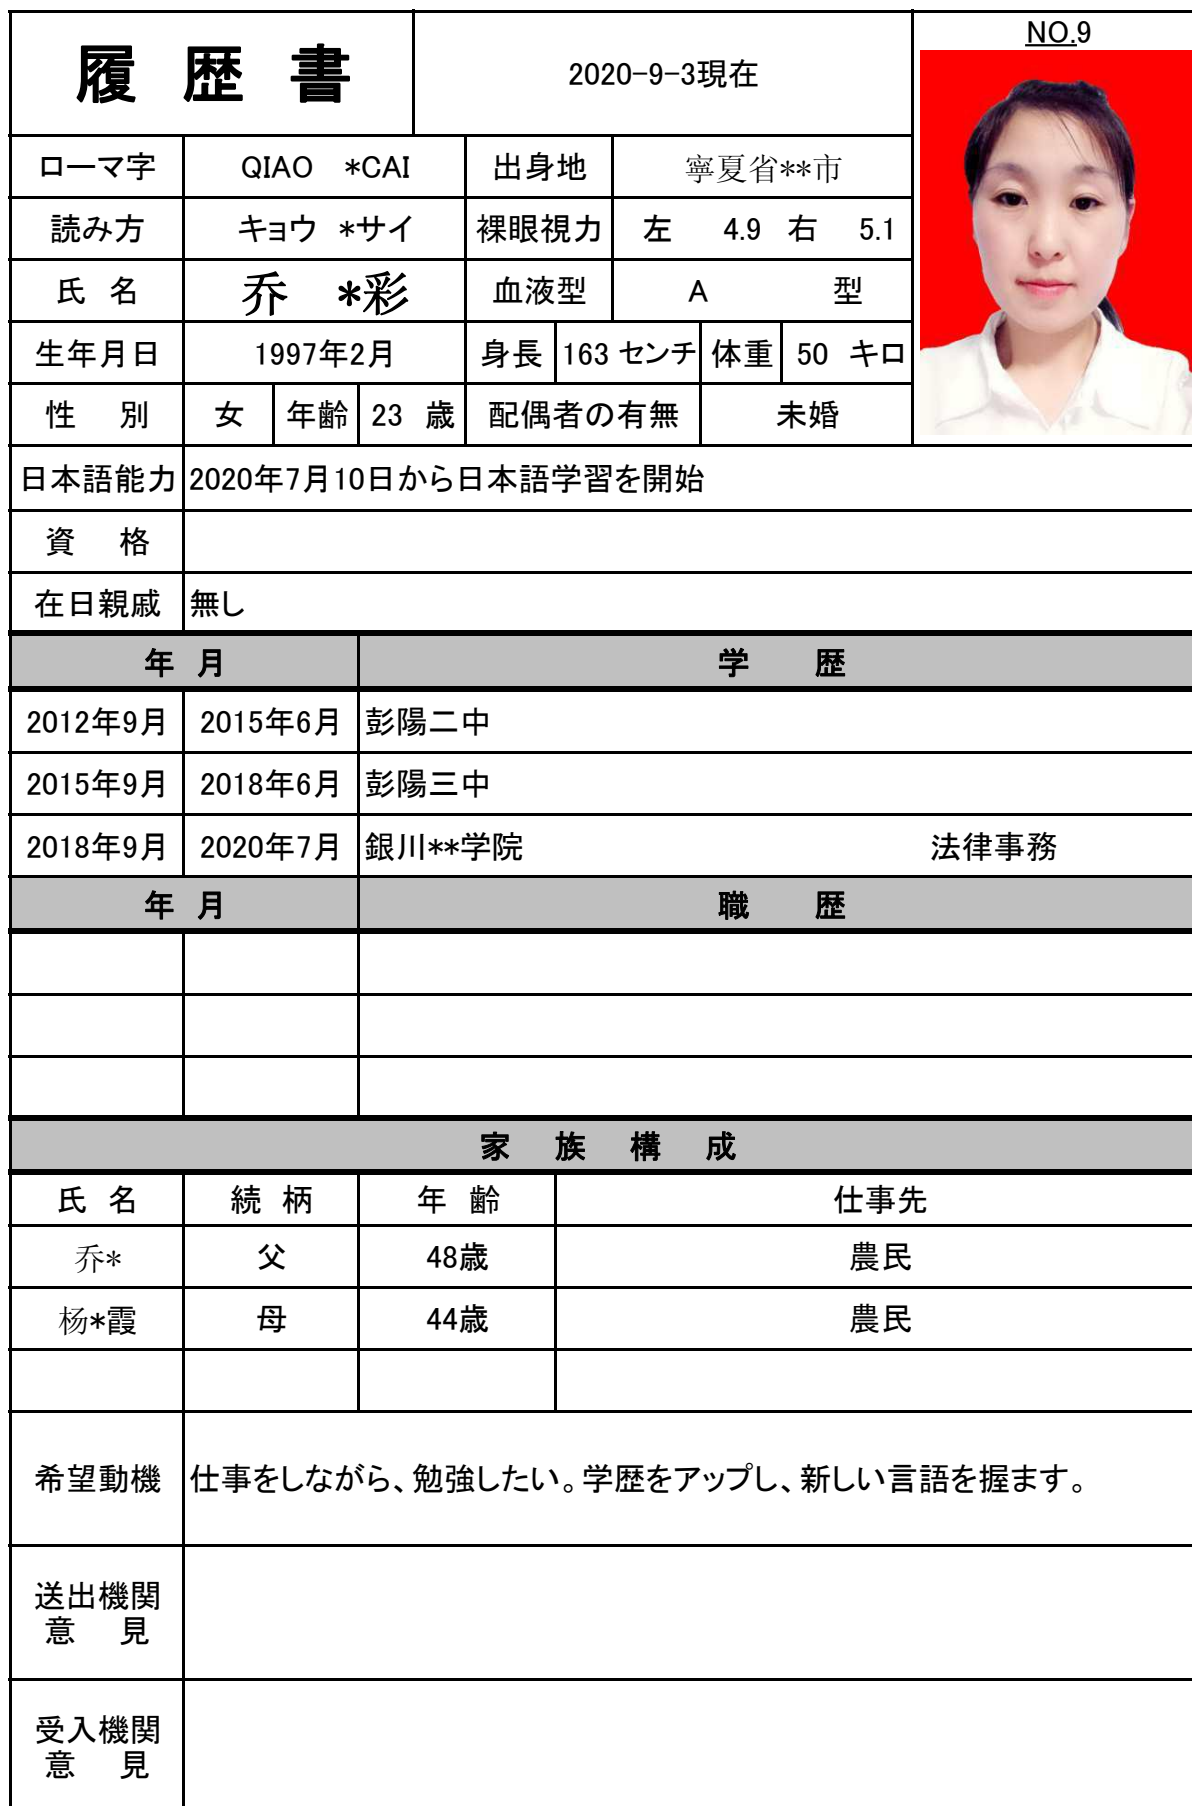 履 歴 書
2020-9-3現在
NO.9
ローマ字 QIAO *CAI 出身地 寧夏省**市
読み方 キョウ *サイ 裸眼視力 左 4.9 右 5.1
氏 名 乔 *彩 血液型 A 型
生年月日 1997年2月 身長 163 センチ 体重 50 キロ
性 別 女 年齢 23 歳 配偶者の有無 未婚
日本語能力 2020年7月10日から日本語学習を開始
資 格
在日親戚 無し
年 月 学 歴
2012年9月 2015年6月 彭陽二中
2015年9月 2018年6月 彭陽三中
2018年9月 2020年7月 銀川**学院 法律事務
年 月 職 歴
家 族 構 成
氏 名 続 柄 年 齢 仕事先
乔* 父 48歳 農民
杨*霞 母 44歳 農民
希望動機 仕事をしながら、勉強したい。学歴をアップし、新しい言語を握ます。
送出機関
意 見
受入機関
意 見